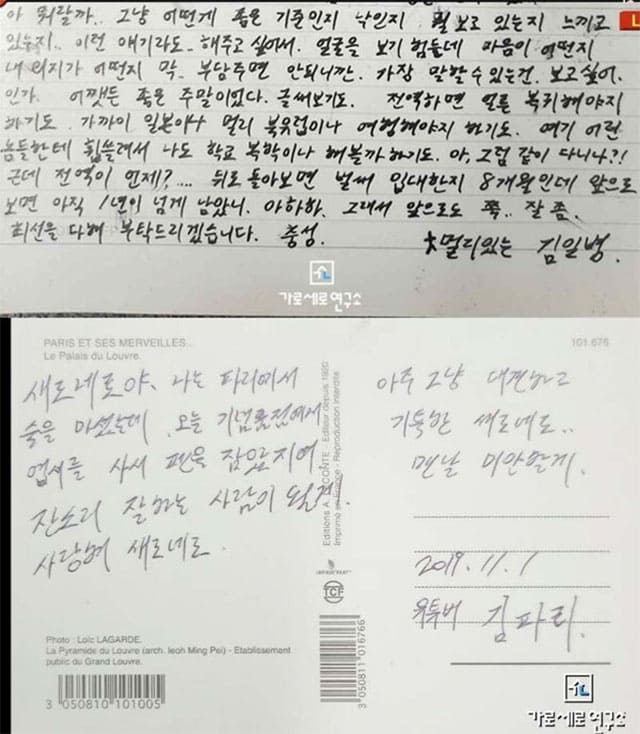 아 뭐랄까.. 그냥 어떤게 좋은 기준인지 낙인지 뭘 보고 있는지 느끼고
있는지.. 이런 얘기라도.. 해주고 싶어서. 얼굴을 보기 힘든데 마음이 어떤지
내 의지가 어떤지 막.. 부담주면 안되니깐. 가장 말할 수 있는건. 보고싶어.
인가. 어쨋든 좋은 주말이었다. 글써보기도. 전역하면 얼른 복귀해야지
하기도. 가까이 일본이나 멀리 북유럽이나 여행해야지 하기도. 여기 어린
놈들한테 휩쓸려서 나도 학교 복학이나 해볼까 하기도. 아, 그럼 같이 다니나?!
근데 전역이 언제?.... 뒤로 돌아보면 벌써 입대한지 8개월인데 앞으로
보면 아직 1년이 넘게 남았니. 아하하. 그래서 앞으로도 쭉.. 잘 좀.
최선을 다해 부탁드리겠습니다. 충성.
멀리있는 김일병.
가로세로연구소
PARIS ET SES MERVEILLES...
Le Palais du Louvre.
101.676
새로네로야, 나는 파리에서
술을 마셨는데. 오늘 기념품점에서
엽서를 사서 펜을 잡았지여.
잔소리 잘하는 사람이 될게.
사랑해 새로네로.
Editions A. LECONTE - Editeur depuis 1920
Imprimé en France - Reproduction interdite
아주 그냥 대견하고
기특한 새로네로..
맨날 미안할게.
2019. 11. 1
유투버 김파리.
IMPRIM'VERT
TCF
3 050811 016766
Photo : Loïc LAGARDE.
La Pyramide du Louvre (arch. Ieoh Ming Pei) - Etablissement
public du Grand Louvre.
3 050810 101005
가로세로연구소